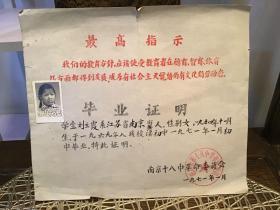 最高指示
我们的教育方针，应该使受教育者在德育、智育、体育
几方面都得到发展，成为有社会主义觉悟的有文化的劳动者。
毕业证明
学生刘玉霞系江苏省南京市人，性别女，一九五四年十一月
生，于一九六九年入我校读初中一九七一年一月初
中毕业，特此证明。
南京十八中革命委员会
一九七一年一月